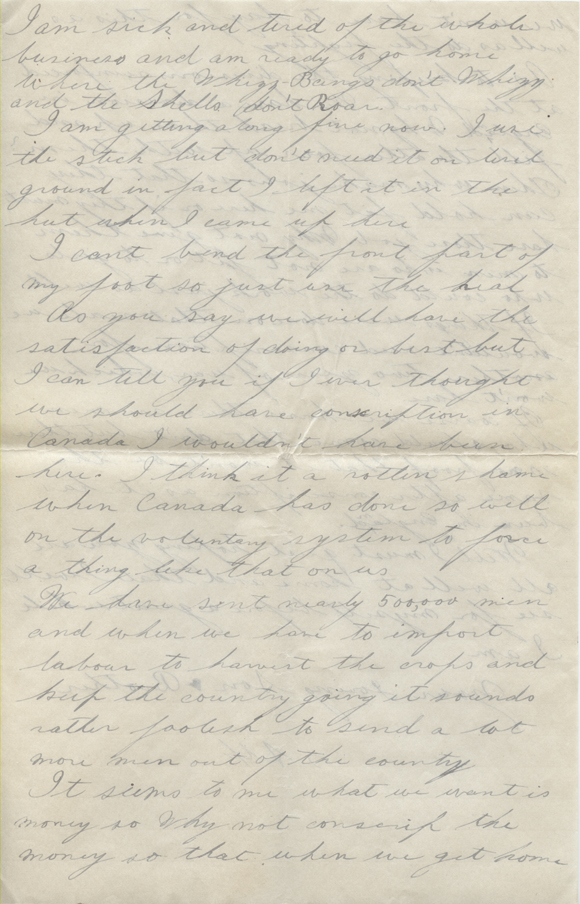 I am sick and tired of the whole
business and am ready to go home
where the Whizz-Bangs don't Whizz
and the Shells don't Roar.
I am getting along fine now. I use
the stick but don't need it on level
ground in fact I left it in the
hut when I came up here
I can't bend the front part of
my foot so just use the heal
As you say we will have the
satisfaction of doing or best but
I can tell you if I ever thought
we should have conscription in
Canada I wouldn't have been
here. I think it a rotten shame
when Canada has done so well
on the voluntary system to force
a thing like that on us
We have sent nearly 500,000 men
and when we have to import
labour to harvest the crops and
keep the country going it sounds
rather foolish to send a lot
more men out of the country
It seems to me what we want is
money so Why not conscrip the
money so that when we get home